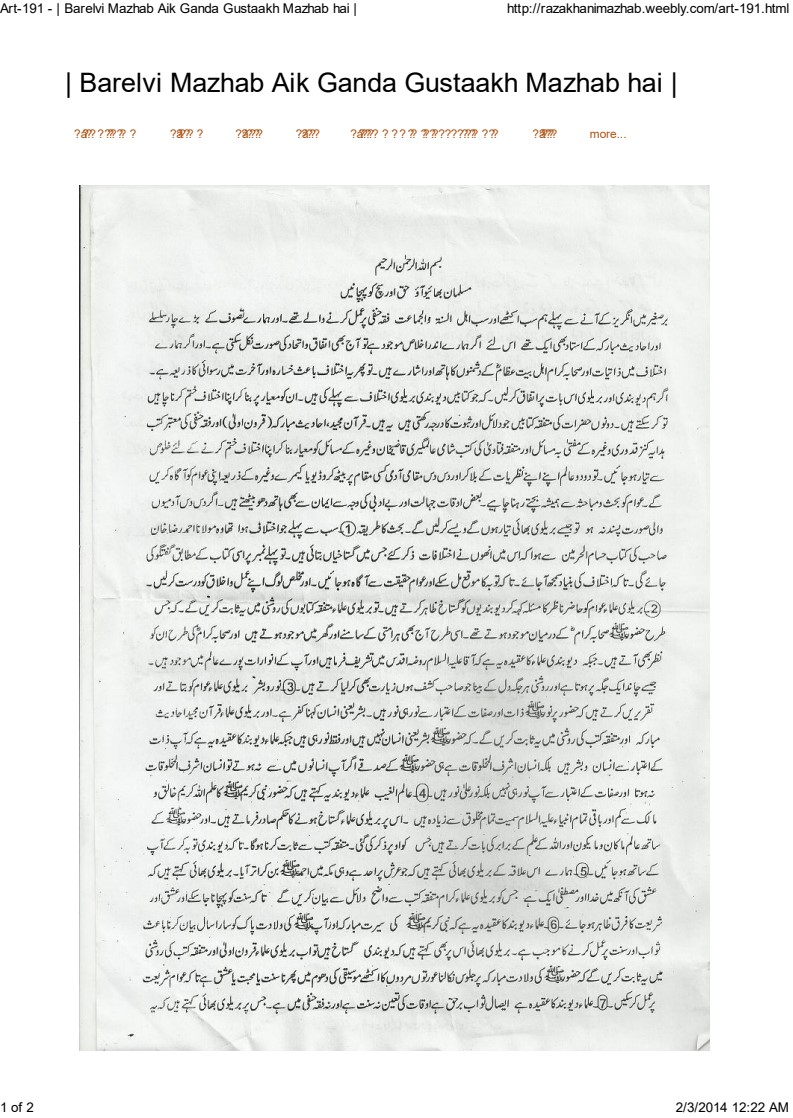 Art-191 - | Barelvi Mazhab Aik Ganda Gustaakh Mazhab hai |
http://razakhanimazhab.weebly.com/art-191.html
| Barelvi Mazhab Aik Ganda Gustaakh Mazhab hai |
more...
بسم اللہ الرحمٰن الرحیم
مسلمان بھائیو آؤ حق اور سچ کو پہچانیں
برصغیر میں انگریز کے آنے سے پہلے ہم سب اکٹھے اور سب اہل السنۃ والجماعت فقہ حنفی پر عمل کرنے والے تھے۔ اور ہمارے تصوف کے بڑے چار سلسلے
اور احادیث مبارکہ کے استاد بھی ایک تھے اس لئے اگر ہمارے اندر اخلاص موجود ہے تو آج بھی اتفاق و اتحاد کی صورت نکل سکتی ہے۔ اور اگر ہمارے
اختلاف میں ذاتیات اور صحابہ کرام اہل بیت عظامؓ کے دشمنوں کا ہاتھ اور اشارے ہیں۔ تو پھر یہ اختلاف باعث خسارہ اور آخرت میں رسوائی کا ذریعہ ہے۔
اگر ہم دیوبندی اور بریلوی اس بات پر اتفاق کرلیں۔ کہ جو کتابیں دیوبندی بریلوی اختلاف سے پہلے کی ہیں۔ ان کو معیار پر بنا کر اپنا اختلاف ختم کرنا چاہیں
تو کر سکتے ہیں۔ دونوں حضرات کی متفقہ کتابیں جو دلائل اور ثبوت کا درجہ رکھتی ہیں یہ ہیں۔ قرآن مجید، احادیث مبارکہ (قرون اولیٰ) اور فقہ حنفی کی معتبر کتب
ہدایہ کنز قدوری وغیرہ کے مفتیٰ بہ مسائل اور متفقہ فتاویٰ کی کتب شامی عالمگیری قاضیخان وغیرہ کے مسائل کو معیار بنا کر اپنا اختلاف ختم کرنے کے لئے خلوص
سے تیار ہو جائیں۔ تو دو دو عالم اپنے اپنے نظریات کے بلا کر اور دس دس مقامی آدمی کسی مقام پر بیٹھ کر وڈیو یا کیمرے وغیرہ کے ذریعہ اپنی عوام کو آگاہ کریں
گے۔ عوام کو بحث و مباحثہ سے ہمیشہ بچتے رہنا چاہیے۔ بعض اوقات جہالت اور بے ادبی کی وجہ سے ایمان سے بھی ہاتھ دھو بیٹھتے ہیں۔ اگر دس دس آدمیوں
والی صورت پسند نہ ہو تو جیسے بریلوی بھائی تیار ہوں گے ویسے کرلیں گے۔ بحث کا طریقہ ①۔ سب سے پہلے جو اختلاف ہوا تھا وہ مولانا احمد رضا خان
صاحب کی کتاب حسام الحرمین سے ہوا کہ اس میں انھوں نے اختلافات ذکر کئے جس میں گستاخیاں بتائی ہیں۔ تو پہلے نمبر پر اسی کتاب کے مطابق گفتگو کی
جائے گی۔ تا کہ اختلاف کی بنیاد سمجھ آ جائے۔ تا کہ توبہ کا موقع مل سکے اور عوام حقیقت سے آگاہ ہو جائیں۔ اور مخلص لوگ اپنے عمل و اخلاق کو درست کرلیں۔
②۔ بریلوی علماء عوام کو حاضر ناظر کا مسئلہ کہہ کر دیوبندیوں کو گستاخ ظاہر کرتے ہیں۔ تو بریلوی علماء متفقہ کتابوں کی روشنی میں یہ ثابت کریں گے۔ کہ جس
طرح حضور ﷺ صحابہ کرامؓ کے درمیان موجود ہوتے تھے۔ اسی طرح آج بھی ہر امتی کے سامنے اور گھر میں موجود ہوتے ہیں اور صحابہ کرامؓ کی طرح ان کو
نظر بھی آتے ہیں۔ جبکہ دیوبندی علماء کا عقیدہ یہ ہے کہ آقا علیہ السلام روضہ اقدس میں تشریف فرما ہیں اور آپ کے انوارات پورے عالم میں موجود ہیں۔
جیسے چاند ایک جگہ پر ہوتا ہے اور روشنی ہر جگہ دل کے بینا جو صاحب کشف ہوں زیارت بھی کر لیا کرتے ہیں۔ ③۔ نور و بشر بریلوی علماء عوام کو بتاتے اور
تقریریں کرتے ہیں کہ حضور پرنور ﷺ ذات اور صفات کے اعتبار سے نور ہی نور ہیں۔ بشر یعنی انسان کہنا کفر ہے۔ اور بریلوی علماء قرآن مجید احادیث
مبارکہ اور متفقہ کتب کی روشنی میں یہ ثابت کریں گے۔ کہ حضور ﷺ بشر یعنی انسان نہیں ہیں اور فقط نور ہی ہیں جبکہ علماء دیوبند کا عقیدہ یہ ہے کہ آپ ذات
کے اعتبار سے انسان و بشر ہیں بلکہ انسان اشرف المخلوقات ہے ہی حضور ﷺ کے صدقے اگر آپ انسانوں میں سے نہ ہوتے تو انسان اشرف المخلوقات
نہ ہوتا اور صفات کے اعتبار سے آپ نور ہی نہیں بلکہ نور علی نور ہیں۔ ④۔ عالم الغیب علماء دیوبند یہ کہتے ہیں کہ حضور نبی کریم ﷺ کا علم اللہ کریم خالق و
مالک سے کم اور باقی تمام انبیاء علیہ السلام سمیت تمام مخلوق سے زیادہ ہیں۔ اس پر بریلوی علماء گستاخ ہونے کا حکم صادر فرماتے ہیں۔ اور حضور ﷺ کے
ساتھ عالم ما کان وما یکون اور اللہ کے علم کے برابر کی بات کرتے ہیں جس کو اوپر ذکر کی گئی۔ متفقہ کتب سے ثابت کرنا ہوگا۔ تا کہ دیوبندی توبہ کر کے آپ
کے ساتھ ہو جائیں۔ ⑤۔ ہمارے اس علاقہ کے بریلوی بھائی کہتے ہیں کہ جو عرش پر احد ہے وہی مکہ میں احمد ﷺ بن کر اتر آیا۔ بریلوی بھائی کہتے ہیں کہ
عشق کی آنکھ میں خدا اور مصطفیٰ ایک ہے جس کو بریلوی علماء کرام متفقہ کتب سے واضح دلائل سے بیان کریں گے تا کہ سنت کو پہچانا جا سکے اور عشق اور
شریعت کا فرق ظاہر ہو جائے۔ ⑥۔ علماء دیوبند کا عقیدہ یہ ہے کہ نبی کریم ﷺ کی سیرت مبارکہ اور آپ ﷺ کی ولادت پاک کو سارا سال بیان کرنا باعث
ثواب اور سنت پر عمل کرنے کا موجب ہے۔ بریلوی بھائی اس پر بھی کہتے ہیں کہ دیوبندی گستاخ ہیں تو اب بریلوی علماء قرون اولیٰ اور متفقہ کتب کی روشنی
میں یہ ثابت کریں گے کہ حضور ﷺ کی ولادت مبارکہ پر جلوس نکالنا عورتوں مردوں کا اکٹھے موسیقی کی دھوم میں پھرنا سنت یا محبت یا عشق ہے تا کہ عوام شریعت
پر عمل کر سکیں۔ ⑦۔ علماء دیوبند کا عقیدہ ہے ایصال ثواب برحق ہے اوقات کی تعین نہ سنت ہے اور نہ فقہ حنفی میں ہے۔ جس پر بریلوی بھائی کہتے ہیں کہ یہ
1 of 2
2/3/2014 12:22 AM